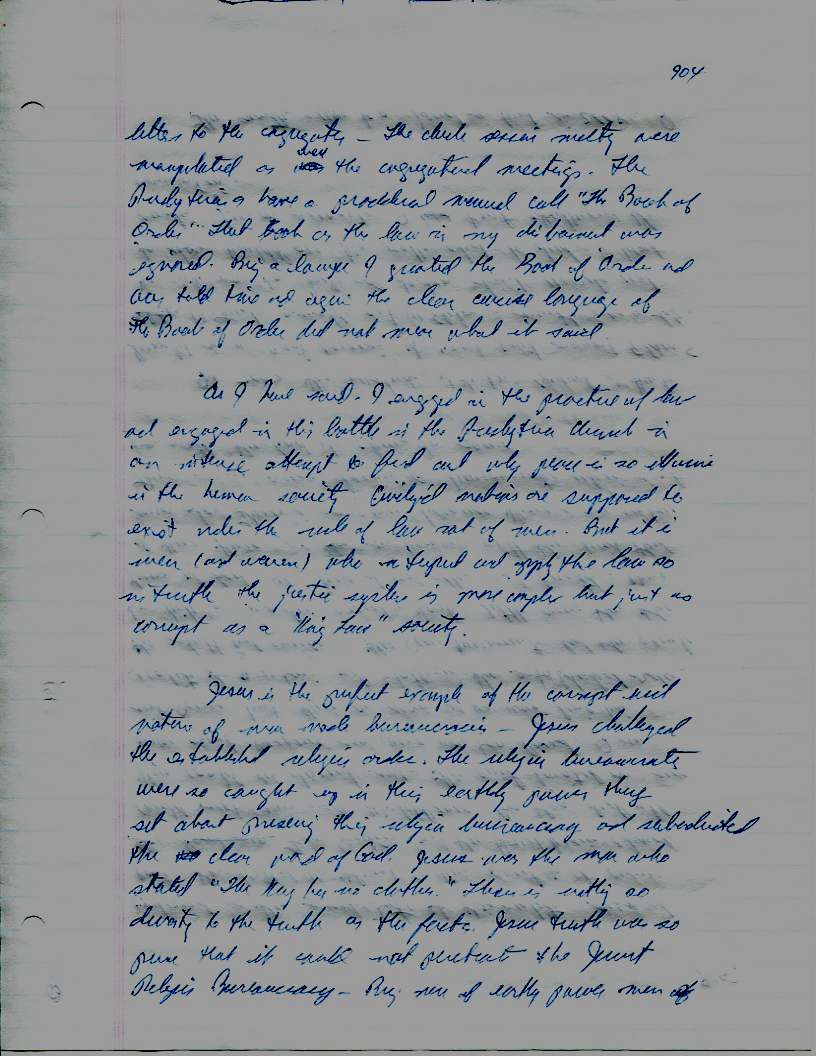 904
letters to the congregation – The church session meeting were
manipulated as well the congregational meetings. The
Presbyterians have a procedural manual call "The Book of
Order" That book as the law in my disbarment was
ignored. Being a lawyer I quoted the Book of Order and
was told time and again the clear concise language of
the Book of Order did not mean what it said.
As I have said – I engaged in the practice of law
and engaged in this battle in the Presbyterian Church in
an intense attempt to find out why peace is so illusive
in the human society Civilized nations are supposed to
exist under the rule of law not of men. But it is
men (and women) who interpret and apply the law so
in truth the justice system is more complex but just as
corrupt as a "King Law" society.
Jesus is the perfect example of the corrupt evil
nature of men made bureaucracies – Jesus challenged
the established religion order. The religion bureaucrats
were so caught up in their earthly power they
set about preserving their religion bureaucracy and subordinated
the clear word of God. Jesus was the man who
stated "The King has no clothes." There is nothing so
to the truth as the facts. Jesus truth was so
pure that it could not penetrate the
Religion Bureaucracy – Being men of earthly power men of